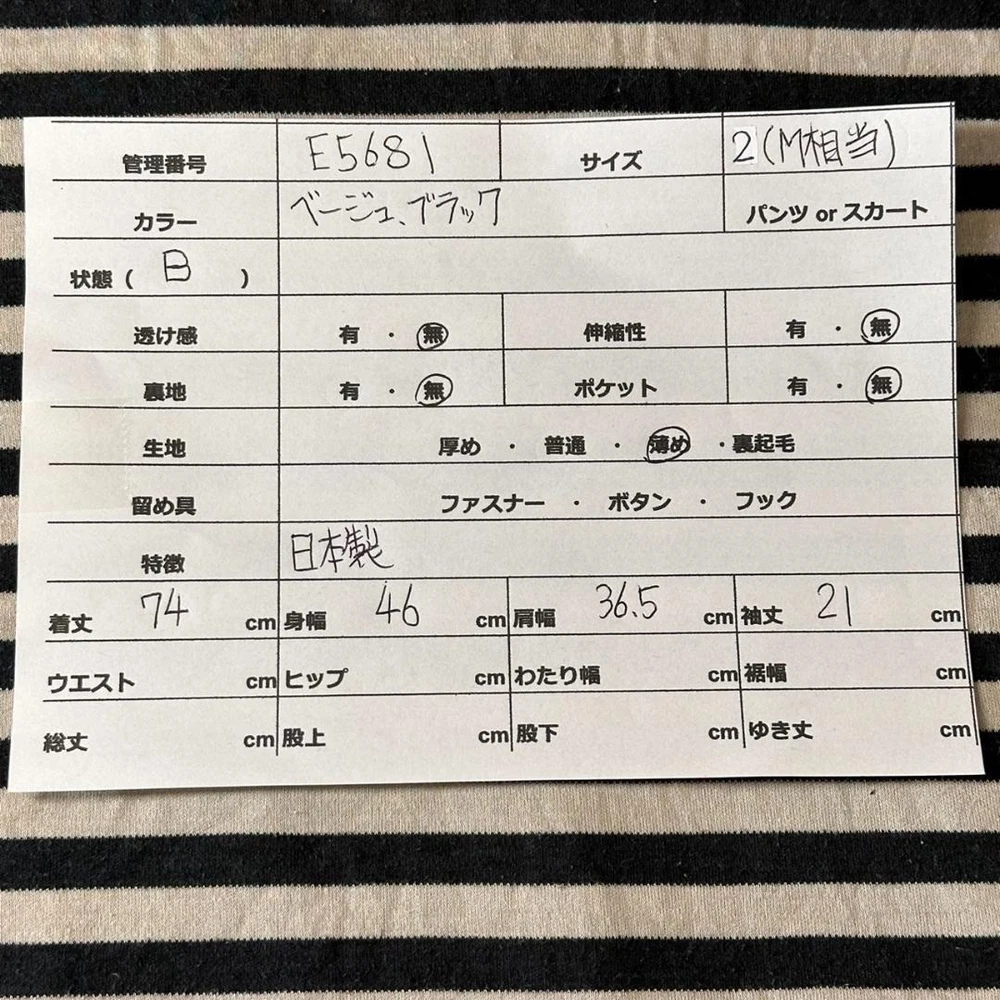 管理番号 E5681 サイズ 2(M相当)
カラー ベージュ、ブラック パンツ or スカート
状態( B )
透け感 有 ・ 無 伸縮性 有 ・ 無
裏地 有 ・ 無 ポケット 有 ・ 無
生地 厚め ・ 普通 ・ 薄め ・ 裏起毛
留め具 ファスナー ・ ボタン ・ フック
特徴 日本製
着丈 74 cm 身幅 46 cm 肩幅 36.5 cm 袖丈 21 cm
ウエスト cm ヒップ cm わたり幅 cm 裾幅 cm
総丈 cm 股上 cm 股下 cm ゆき丈 cm